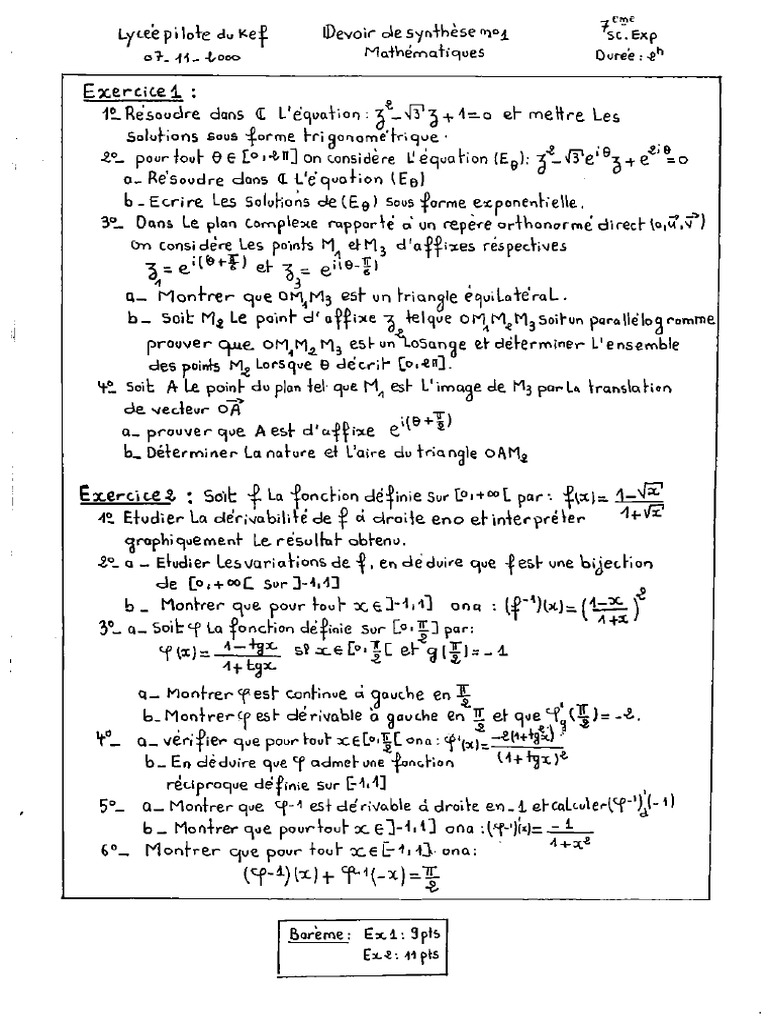 Lycée pilote du Kef
07-11-2000
Devoir de synthèse n°1
Mathématiques
7eme
Sc. Exp
Durée : 2h
Exercice 1 :
1°_ Résoudre dans ℂ L'équation : z²-√3 z + 1 = 0 et mettre Les
solutions sous forme trigonométrique.
2°_ pour tout θ ∈ [0, 2π] on considère L'équation (Eθ) : z²-√3 e^{iθ} z + e^{2iθ} = 0
a_ Résoudre dans ℂ L'équation (Eθ)
b_ Ecrire Les solutions de (Eθ) sous forme exponentielle.
3°_ Dans Le plan complexe rapporté à un repère orthonormé direct (o, u⃗, v⃗)
on considère Les points M₁ et M₃ d'affixes réspectives
z₁ = e^{i(θ+π/6)} et z₃ = e^{i(θ-π/6)}
a_ Montrer que OM₁M₃ est un triangle équilatéral.
b_ Soit M₂ Le point d'affixe z₂ tel que OM₁M₂M₃ soit un parallélogramme
prouver que OM₁M₂M₃ est un Losange et déterminer L'ensemble
des points M₂ Lorsque θ décrit [0, 2π].
4° Soit A Le point du plan tel que M₁ est L'image de M₃ par La translation
de vecteur OA⃗
a_ prouver que A est d'affixe e^{i(θ+π/2)}
b_ Déterminer La nature et L'aire du triangle OAM₂
Exercice 2 : Soit f La fonction définie sur [0, +∞[ par : f(x) = (1-√x)/(1+√x)
1° Etudier La dérivabilité de f à droite en 0 et interpréter
graphiquement Le résultat obtenu.
2°_ a _ Etudier Les variations de f, en déduire que f est une bijection
de [0, +∞[ sur ]-1, 1]
b _ Montrer que pour tout x ∈ ]-1, 1] on a : (f⁻¹)(x) = ((1-x)/(1+x))²
3°_ a_ Soit φ La fonction définie sur [0, π/2] par :
φ(x) = (1-tgx)/(1+tgx) si x ∈ [0, π/2[ et g(π/2) = -1
a_ Montrer φ est continue à gauche en π/2
b_ Montrer φ est dérivable à gauche en π/2 et que φ'g(π/2) = -2.
4°_ a_ vérifier que pour tout x ∈ [0, π/2[ on a : φ'(x) = -2(1+tg²x)/(1+tgx)²
b_ En déduire que φ admet une fonction
réciproque définie sur [-1, 1]
5°_ a_ Montrer que φ⁻¹ est dérivable à droite en -1 et calculer (φ⁻¹)'d(-1)
b_ Montrer que pour tout x ∈ ]-1, 1] on a : (φ⁻¹)'(x) = -1/(1+x²)
6°_ Montrer que pour tout x ∈ [-1, 1] on a :
(φ⁻¹)(x) + φ⁻¹(-x) = π/2
Barème : Ex 1 : 9 pts
Ex 2 : 11 pts